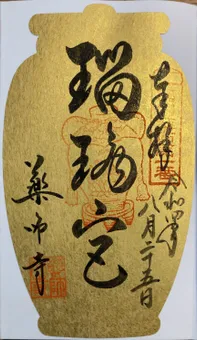 奉拝
令和四年
八月二十五日
瑠璃宮
藥師寺